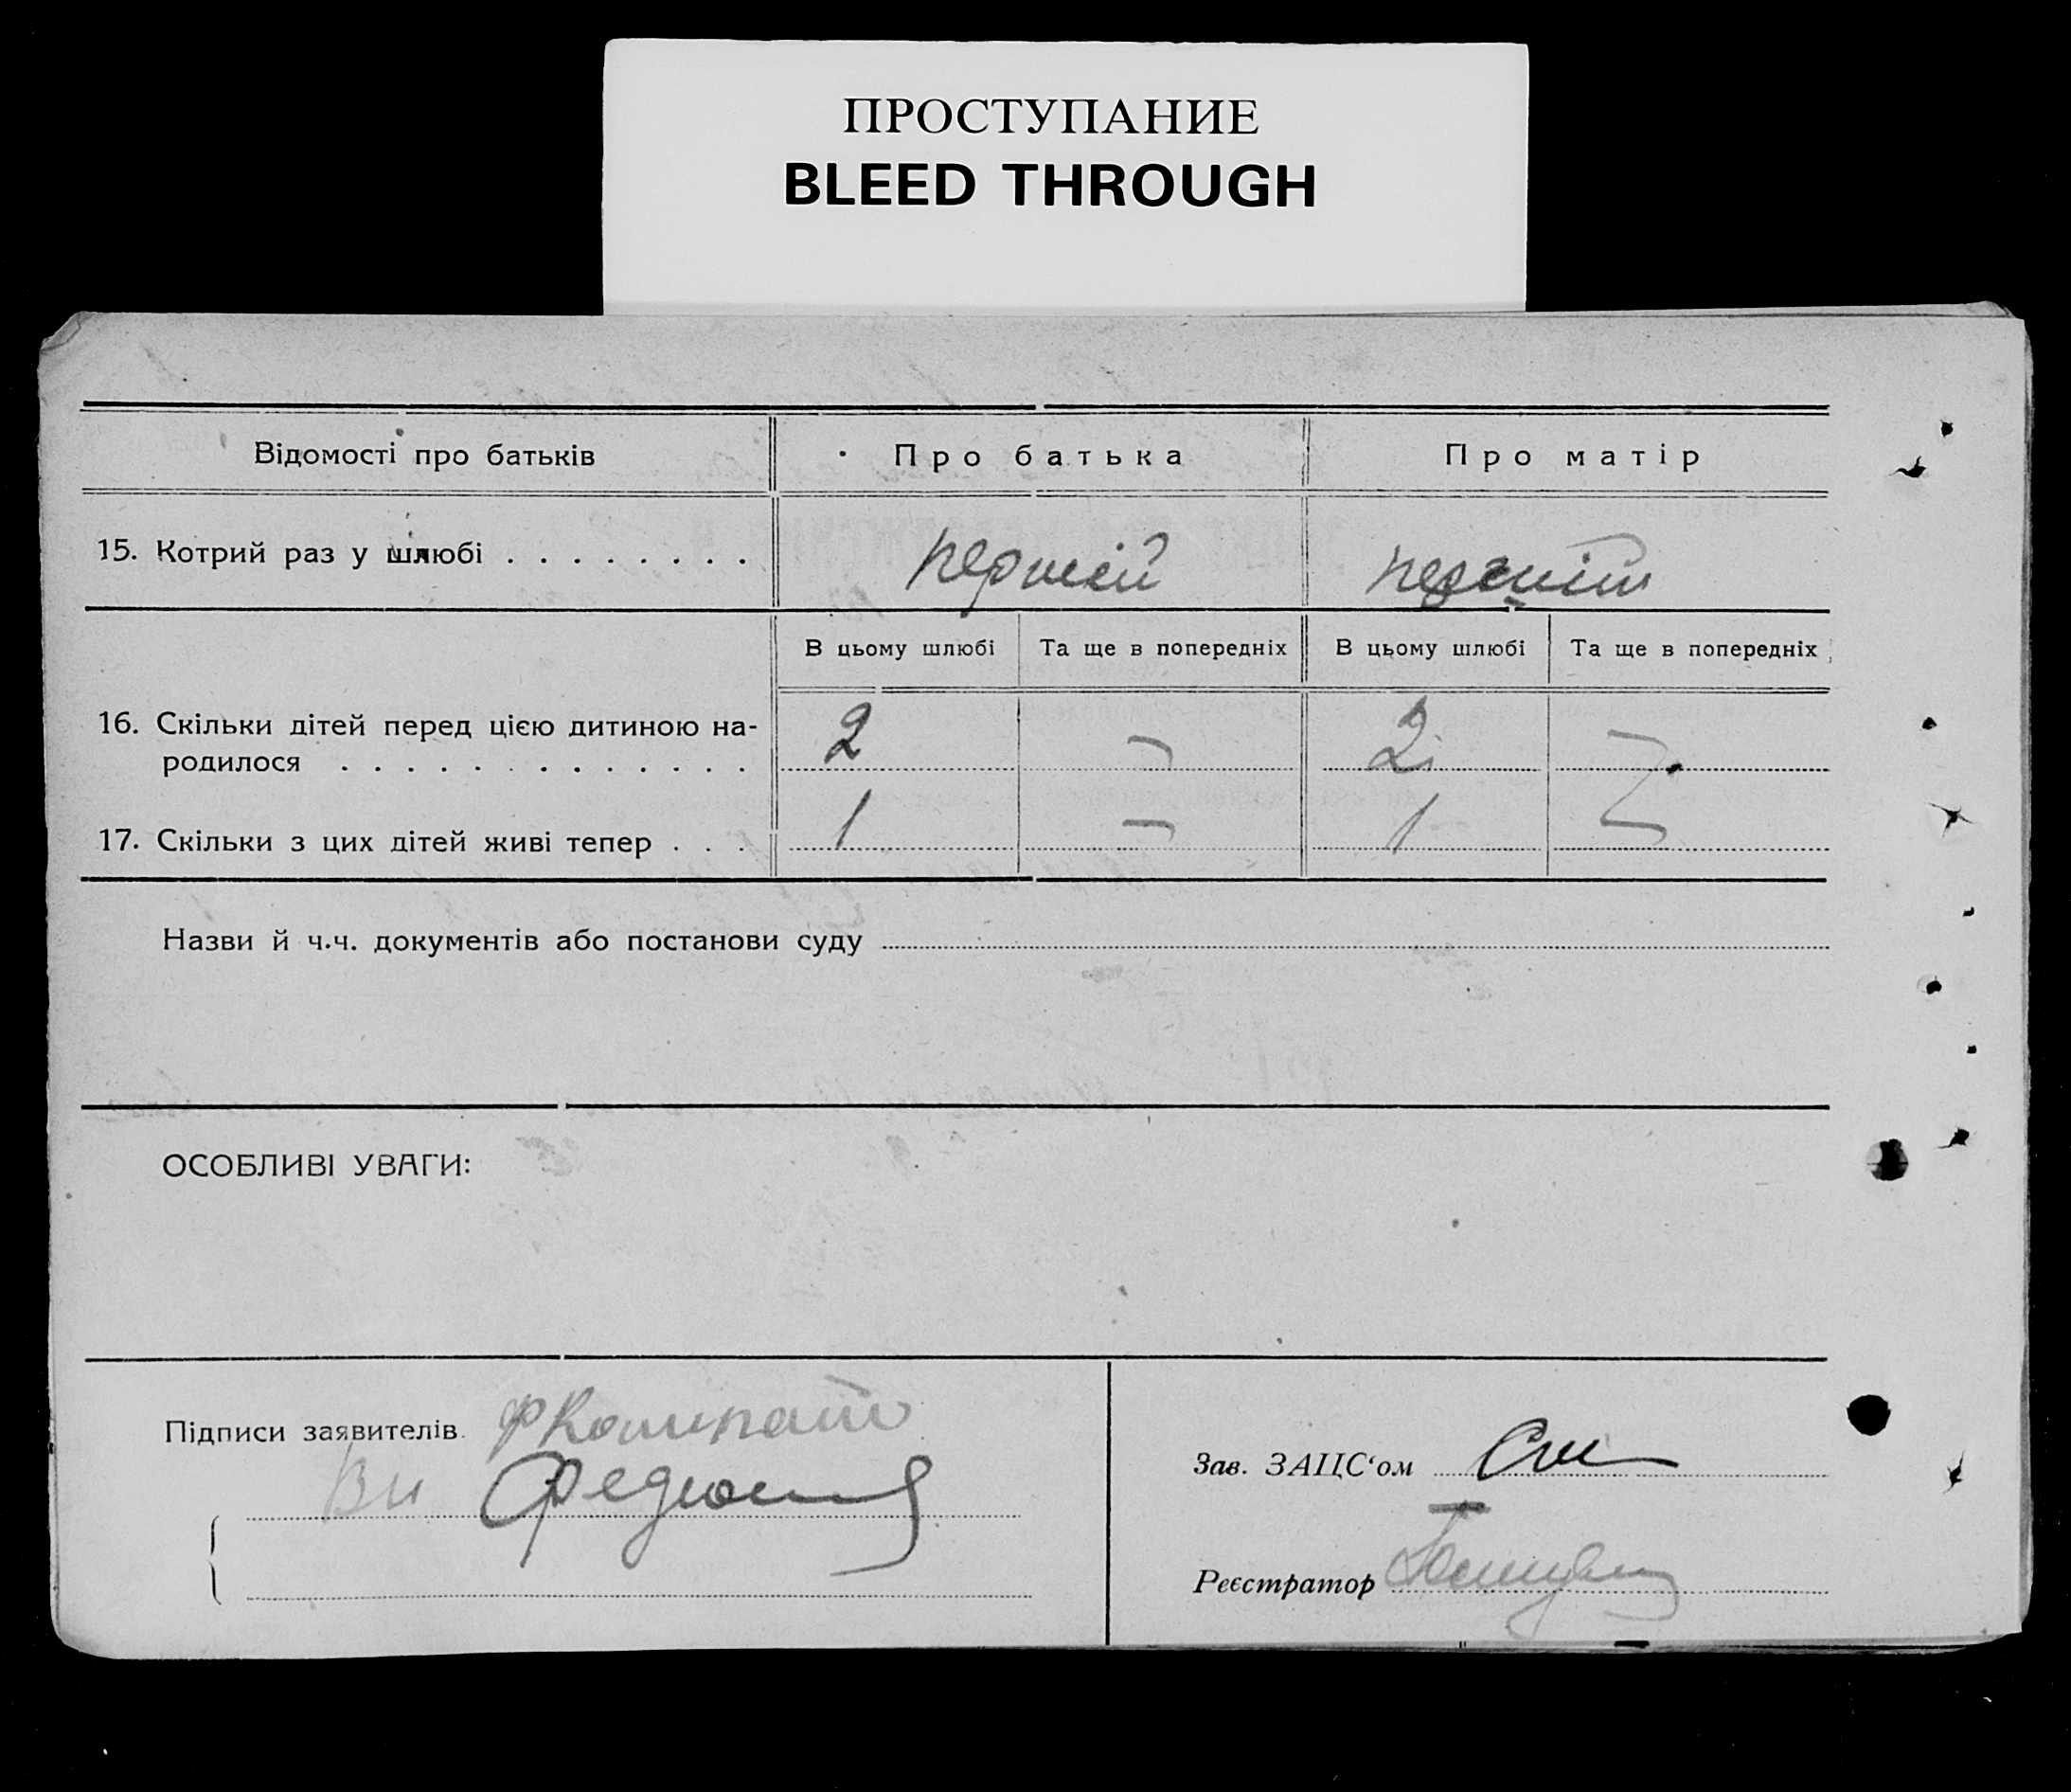 ПРОСТУПАНИЕ
BLEED THROUGH
Відомості про батьків
Про батька
Про матір
15. Котрий раз у шлюбі . . . . . . . .
перший
В цьому шлюбі
Та ще в попередніх
В цьому шлюбі
Та ще в попередніх
16. Скільки дітей перед цією дитиною на-
родилося . . . . . . . . . . . . .
2 — 2 —
17. Скільки з цих дітей живі тепер . . .
1 — 1 —
Назви й ч.ч. документів або постанови суду
ОСОБЛИВІ УВАГИ:
Підписи заявителів
Зав. ЗАЦС‘ом
Реєстратор